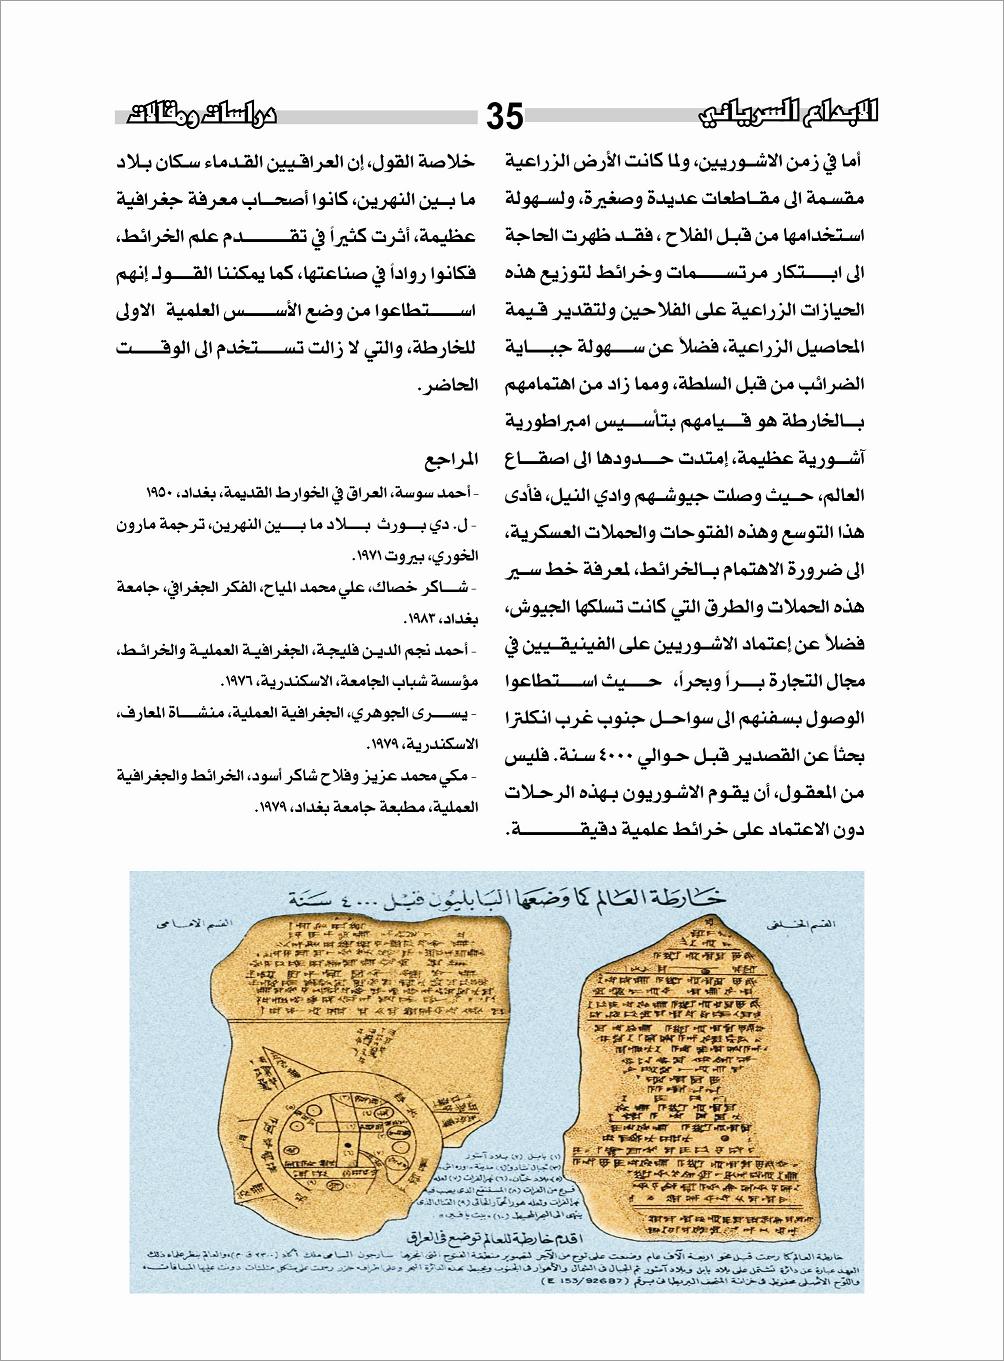 الابداع السرياني
35
دراسات ومقالات
أما في زمن الاشوريين، ولما كانت الأرض الزراعية
مقسمة الى مقاطعات عديدة وصغيرة، ولسهولة
استخدامها من قبل الفلاح ، فقد ظهرت الحاجة
الى ابتكار مرتسمات وخرائط لتوزيع هذه
الحيازات الزراعية على الفلاحين ولتقدير قيمة
المحاصيل الزراعية، فضلاً عن سهولة جباية
الضرائب من قبل السلطة، ومما زاد من اهتمامهم
بالخارطة هو قيامهم بتأسيس امبراطورية
آشورية عظيمة، إمتدت حدودها الى اصقاع
العالم، حيث وصلت جيوشهم وادي النيل، فأدى
هذا التوسع وهذه الفتوحات والحملات العسكرية،
الى ضرورة الاهتمام بالخرائط، لمعرفة خط سير
هذه الحملات والطرق التي كانت تسلكها الجيوش،
فضلاً عن إعتماد الاشوريين على الفينيقيين في
مجال التجارة براً وبحراً، حيث استطاعوا
الوصول بسفنهم الى سواحل جنوب غرب انكلترا
بحثاً عن القصدير قبل حوالي ٤٠٠٠ سنة. فليس
من المعقول، أن يقوم الاشوريون بهذه الرحلات
دون الاعتماد على خرائط علمية دقيقة.
خلاصة القول، إن العراقيين القدماء سكان بلاد
ما بين النهرين، كانوا أصحاب معرفة جغرافية
عظيمة، أثرت كثيراً في تقدم علم الخرائط،
فكانوا رواداً في صناعتها، كما يمكننا القول إنهم
استطاعوا من وضع الأسس العلمية الاولى
للخارطة، والتي لا زالت تستخدم الى الوقت
الحاضر.
المراجع
- أحمد سوسة، العراق في الخوارط القديمة، بغداد، ١٩٥٠
- ل. دي بورث بلاد ما بين النهرين، ترجمة مارون
الخوري، بيروت ١٩٧١.
- شاكر خصاك، علي محمد المياح، الفكر الجغرافي، جامعة
بغداد، ١٩٨٣.
- أحمد نجم الدين فليجة، الجغرافية العملية والخرائط،
مؤسسة شباب الجامعة، الاسكندرية، ١٩٧٦.
- يسرى الجوهري، الجغرافية العملية، منشاة المعارف،
الاسكندرية، ١٩٧٩.
- مكي محمد عزيز وفلاح شاكر أسود، الخرائط والجغرافية
العملية، مطبعة جامعة بغداد، ١٩٧٩.
خارطة العالم كما وضعها البابليون قبل ٤٠٠٠ سنة
القسم الخلفي
القسم الامامي
(١) بابل (٢) بلاد آشور
اقدم خارطة للعالم توضع في العراق
خارطة العالم كما رسمت قبل نحو اربعة آلاف عام
والمتحف البريطاني برقم (E 153/92687)